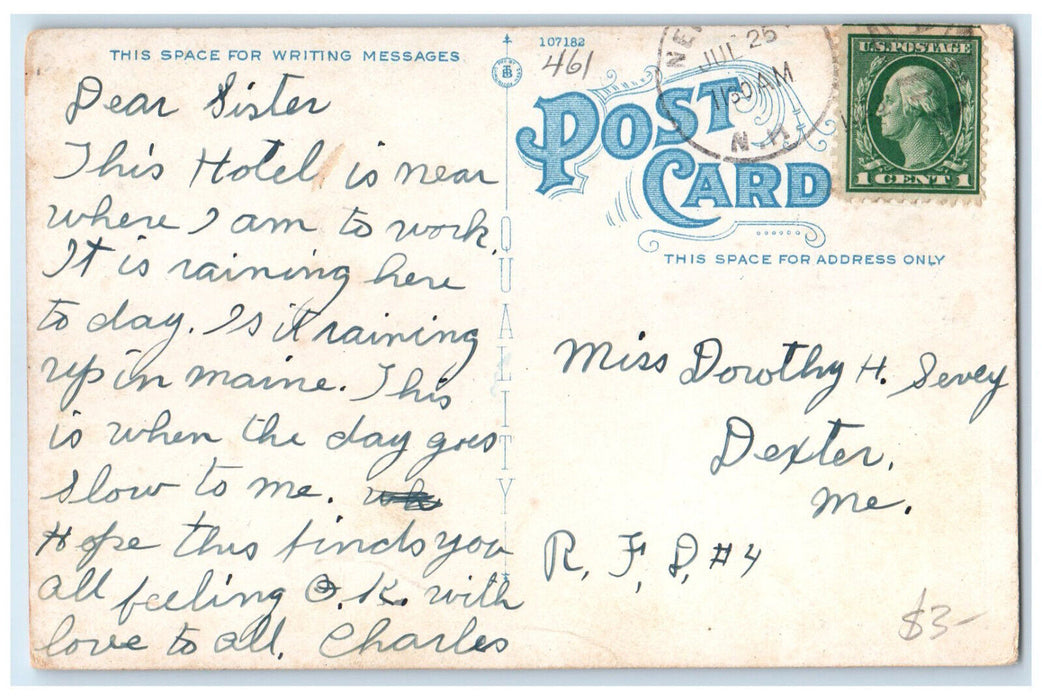 THIS SPACE FOR WRITING MESSAGES
Dear Sister
This Hotel is near
where I am to work.
It is raining here
to day. Is it raining
up in maine. This
is when the day goes
slow to me.
Hope this finds you
all feeling O.K. with
love to all. Charles
QUALITY
107182
461
POST
CARD
JUL 25
1130 AM
N.H.
U.S. POSTAGE
1 CENT 1
THIS SPACE FOR ADDRESS ONLY
Miss Dorothy H. Sevey
Dexter,
Me.
R. F. D. #4
$3-